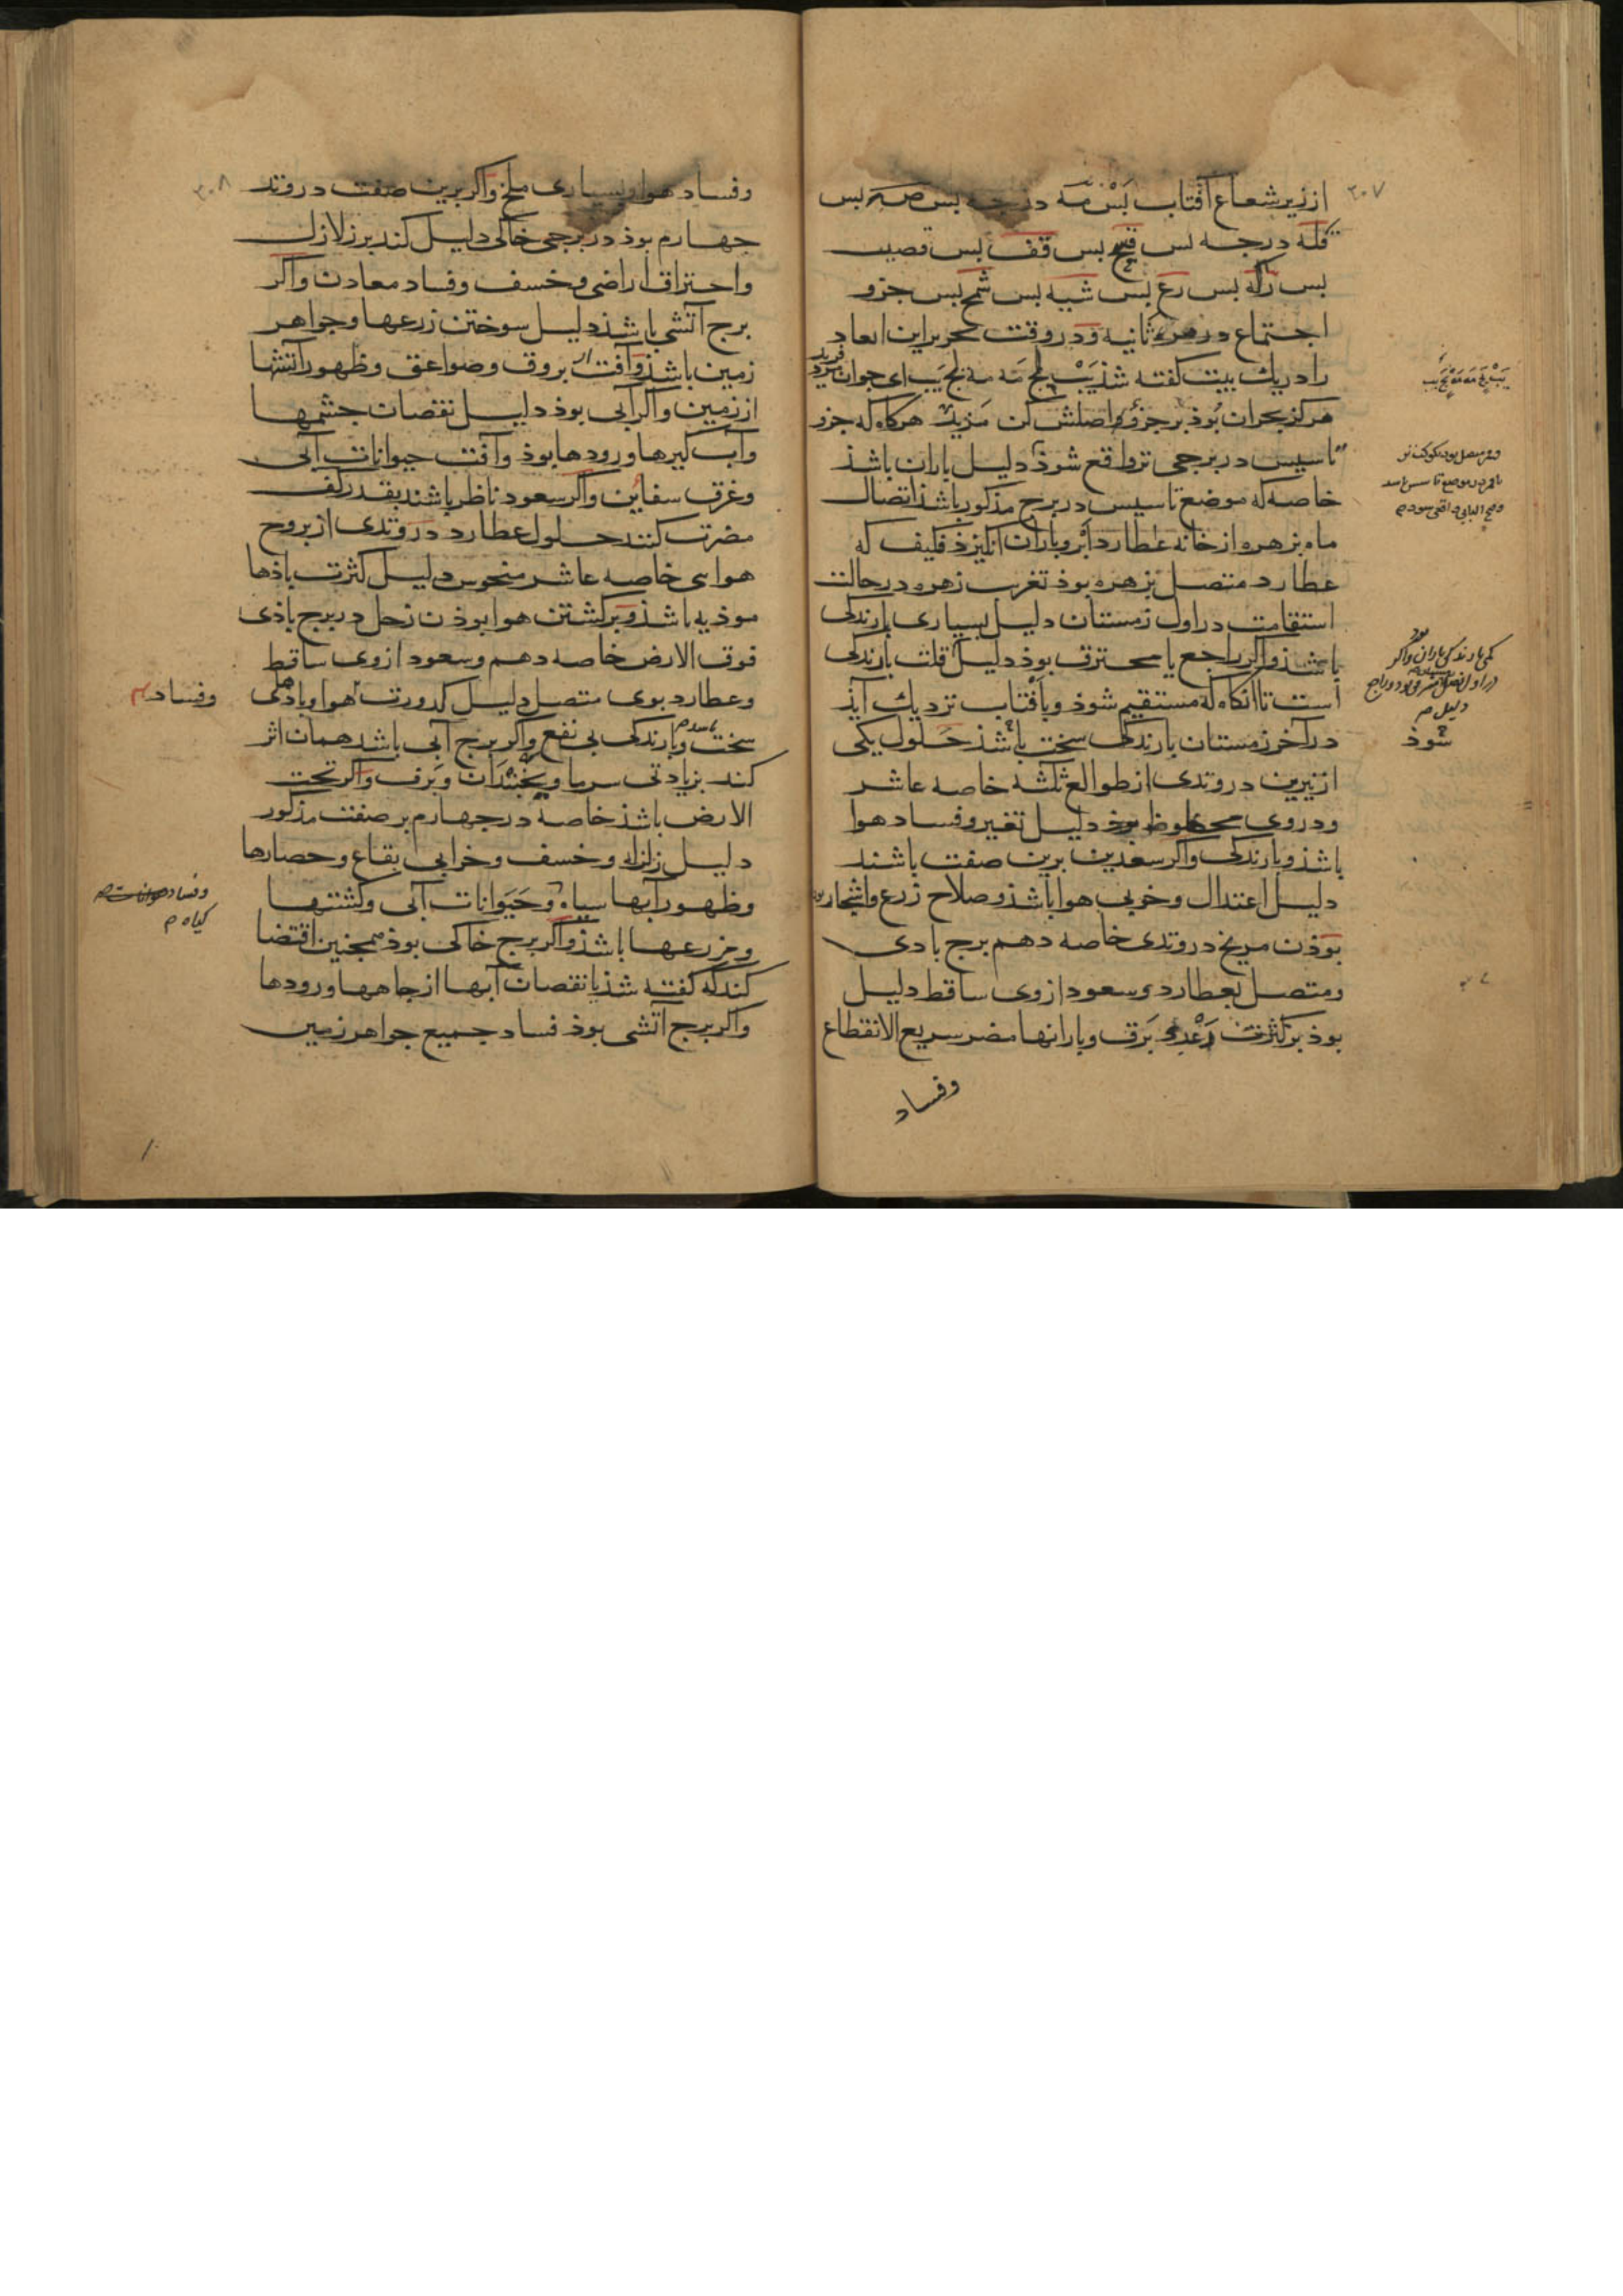 ۳۰۷
از زیر شعاع آفتاب بس مه درجه بس صه بس
قله درجه بس قیح بس قف بس قصیب
بس رکه بس رع بس شیه بس شمح بس جزو
اجتماع در مره ثانیه و در وقت تحریر این ابعاد
را در یک بیت گفته شذ یب لح مه مه لح یب ای جوان فرید
مرکز بحران بوذ بر جزو و اصلش کن مزید هرکاه که جزو
تاسیس در برجی تر واقع شوذ دلیل باران باشذ
خاصه که موضع تاسیس در برج مذکور باشذ اتصال
ماه بزهره از خانه عطارد ابر و باران انکیزذ فکیف که
عطارد متصل بزهره بوذ تغریب زهره در حالت
استقامت در اول زمستان دلیل بسیاری بارندکی
باشذ و اکر راجع یا محترق بوذ دلیل قلت بارندکی
است تا آنکاه که مستقیم شوذ و بآفتاب نزدیک آیذ
در آخر زمستان بارندکی سخت باشذ حلول یکی
از نیرین در وتدی از طوالع ثلثه خاصه عاشر
و در وی محظوظ بوذ دلیل تغیر و فساد هوا
باشذ و بارندکی و اکر سعدین برین صفت باشند
دلیل اعتدال و خوبی هوا باشذ و صلاح زرع و اشجار بود
بوذن مریخ در وتدی خاصه دهم برج بادی
و متصل بعطارد و سعود از وی ساقط دلیل
بوذ بر کثرت رعد و برق و بارانها مضر سریع الانقطاع
و فساد
شوذ
۳۰۸
و فساد هوا و بسیاری ملخ و اکر برین صفت در وتد
جهارم بوذ در برجی خاکی دلیل کند بر زلازل
و احتراق اراضی و خسف و فساد معادن و اکر
برج آتشی باشذ دلیل سوختن زرعها و جواهر
زمین باشذ و آفت از بروق و صواعق و ظهور آتشها
از زمین و اکر آبی بوذ دلیل نقصان جشمها
و آب کیرها و رودها بوذ و آفت حیوانات آبی
و غرق سفاین و اکر سعود ناظر باشند بقدر کف
مضرت کنند حلول عطارد در وتدی از بروج
هوایی خاصه عاشر منحوس دلیل کثرت باذها
موذیه باشذ و برکشتن هوا بوذن زحل در برج باذی
فوق الارض خاصه دهم و سعود از وی ساقط
و عطارد بوی متصل دلیل کدورت هوا و بادهای
سخت و بارندکی بی نفع و اکر برج آبی باشد همان اثر
کند بزیادتی سرما و یخبندان و برف و اکر تحت
الارض باشذ خاصه در جهارم بر صفت مذکور
دلیل زلزله و خسف و خرابی بقاع و حصارها
و ظهور آبها سیاه و حیوانات آبی و کشتیها
و مزرعها باشذ و اکر برج خاکی بوذ همجنین اقتضا
کند که کفته شذ با نقصان آبها از جاهها و رودها
و اکر برج آتشی بوذ فساد جمیع جواهر زمین
و فساد
و فساد
کیاه